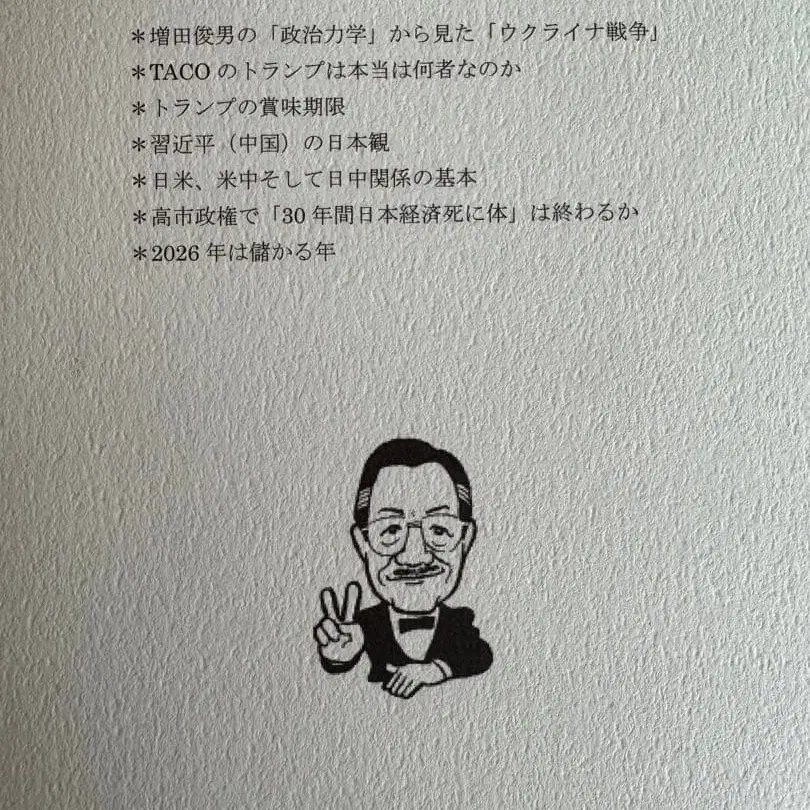 ＊増田俊男の「政治力学」から見た「ウクライナ戦争」
＊TACOのトランプは本当は何者なのか
＊トランプの賞味期限
＊習近平（中国）の日本観
＊日米、米中そして日中関係の基本
＊高市政権で「30年間日本経済死に体」は終わるか
＊2026年は儲かる年